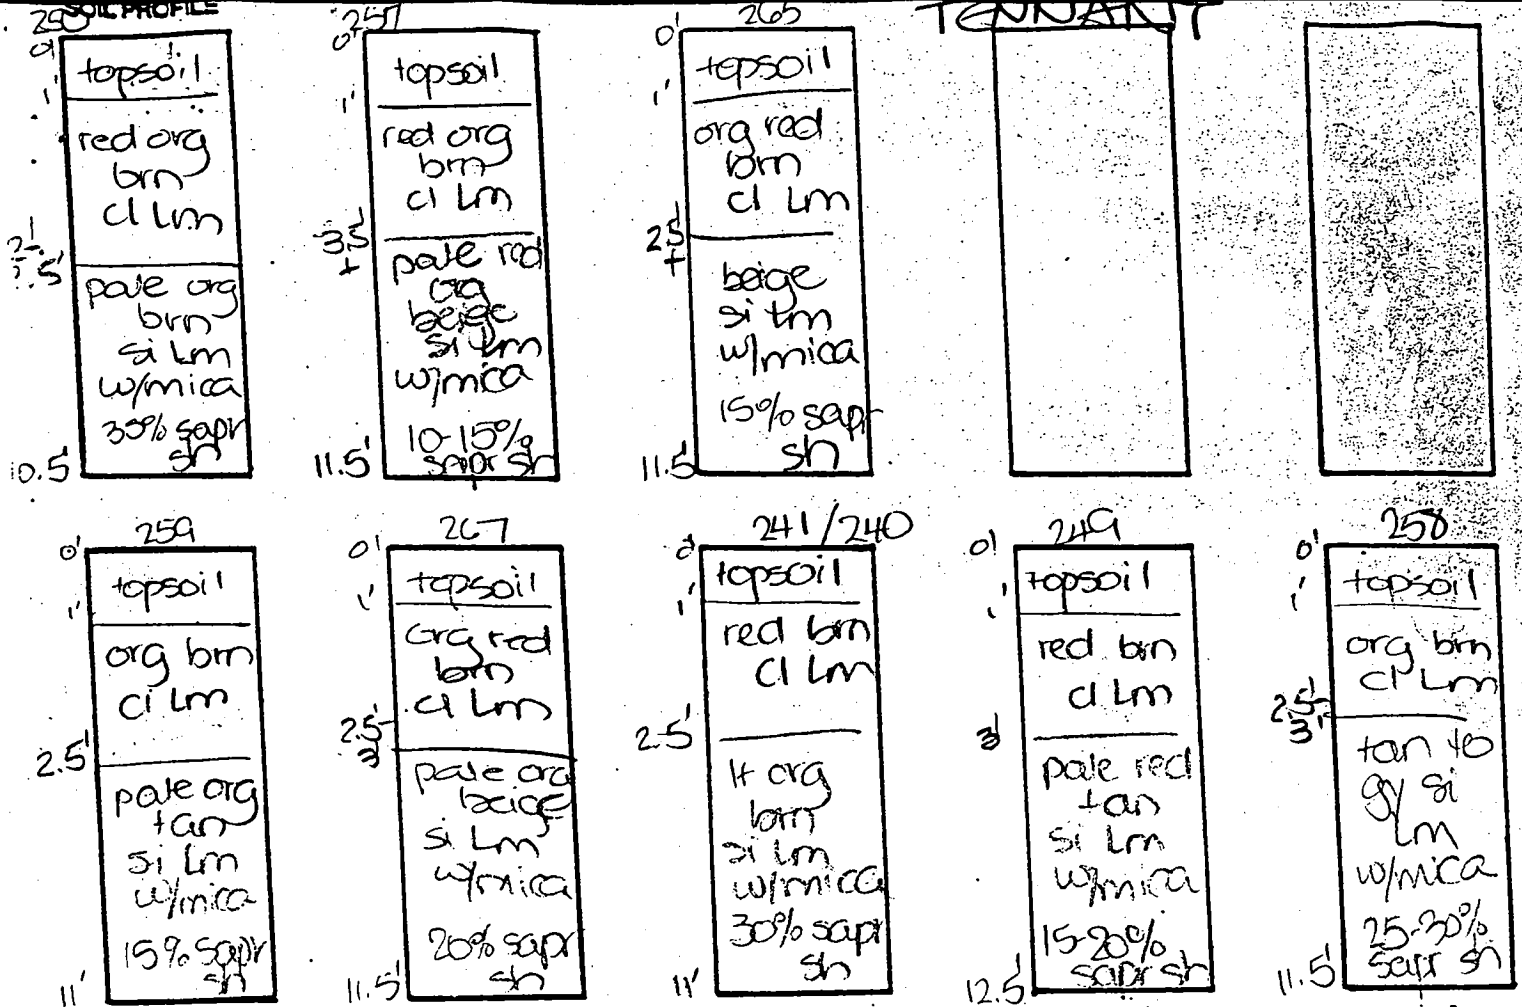 SOIL PROFILE
TENNANT
0'
topsoil
1'
red org
brn
cl Lm
2'-
pale org
brn
si Lm
w/mica
30% sapr
sh
10.5'
257
0'
topsoil
1'
red org
brn
cl Lm
3.5'
+
pale red
org
beige
si Lm
w/mica
10-15%
sapr sh
11.5'
265
0'
topsoil
1'
org red
brn
cl Lm
2.5'
+
beige
si Lm
w/mica
15% sapr
sh
11.5'
259
0'
topsoil
1'
org brn
cl Lm
2.5'
pale org
tan
si Lm
w/mica
15% sapr
sh
11'
267
0'
topsoil
1'
org red
brn
cl Lm
2.5'-
3'
pale org
beige
si Lm
w/mica
20% sapr
sh
11.5'
241/240
0'
topsoil
1'
red brn
cl Lm
2.5'
lt org
brn
si Lm
w/mica
30% sapr
sh
11'
249
0'
topsoil
1'
red brn
cl Lm
3'
pale red
tan
si Lm
w/mica
15-20%
sapr sh
12.5'
258
0'
topsoil
1'
org brn
cl Lm
2.5'-
3'
tan to
gy si
Lm
w/mica
25-30%
sapr sh
11.5'